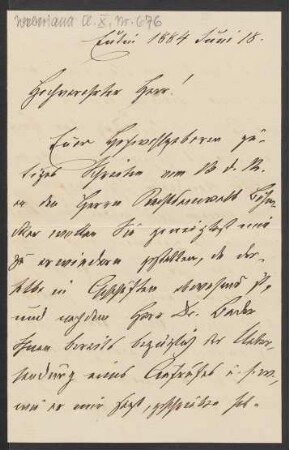 Weberiana Cl. X, Nr. 676
Eutin 1884 Juni 18.
Hochverehrter Herr!
Euer Hochwohlgeboren gü-
tiges Schreiben vom 16 d. M.
an den Herrn Rechtsanwalt Böhm-
cker wollen Sie geneigtest mir
zu erwiedern gestatten, da der-
selbe in Geschäften abwesend ist,
und nachdem Herr Dr.
Ihnen bereits bezüglich der Ueber-
sendung eines Aufrufes u.s.w.,
wie er mir sagt, geschrieben hat-